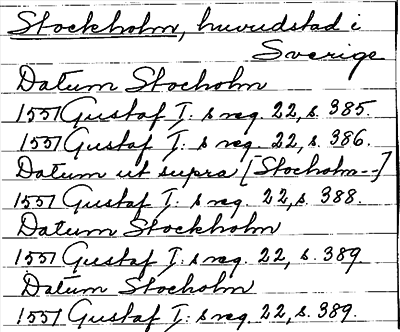 Stockholm, huvudstad i
Sverige
Datum Stocholm
1551 Gustaf I: s reg. 22, s. 385.
1551 Gustaf I: s reg. 22, s. 386.
Datum ut supra [Stocholm--]
1551 Gustaf I: s reg. 22, s. 388.
Datum Stockholm
1551 Gustaf I: s reg. 22, s. 389
Datum Stocholm
1551 Gustaf I: s reg. 22, s. 389.